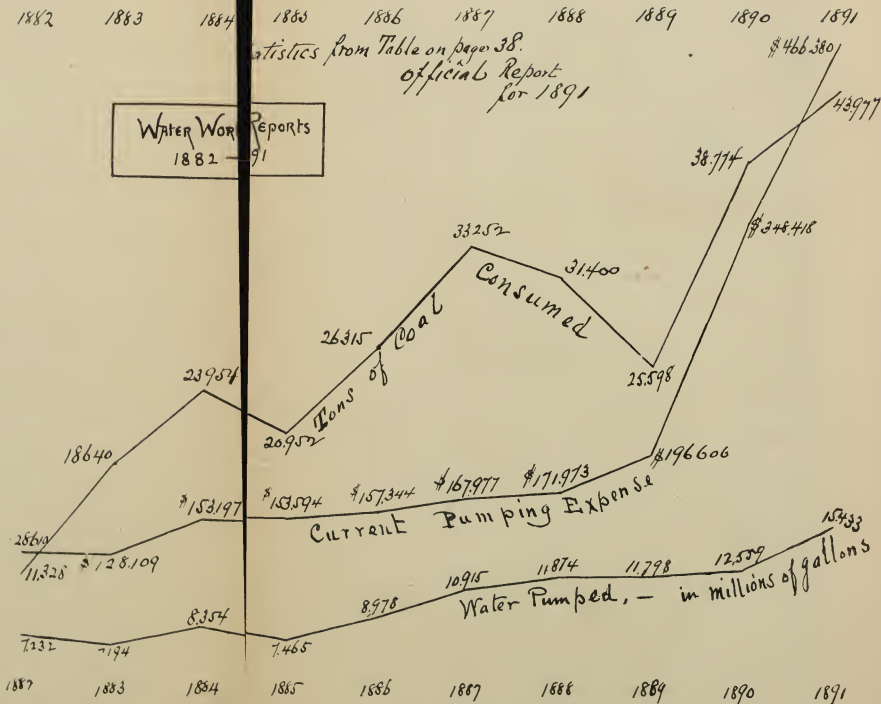 1882 1883 1884 1885 1886 1887 1888 1889 1890 1891
atistics from Table on page 38.
Official Report
for 1891
WATER WOR REPORTS
1882 — 91
$466.380
43.977
38.774
$348.418
33252
31.400
26315
Tons of Coal Consumed
25.598
23954
20.952
18640
$196606
$153.197 $153.594 $157.344 $167.977 $171.973
Current Pumping Expense
11,328 $128.109
15.433
7.232 7194 8.354 7.465 8.978 10.915 11.874 11.798
Water Pumped, — in millions of gallons
1883 1884 1885 1886 1887 1888 1889 1890 1891